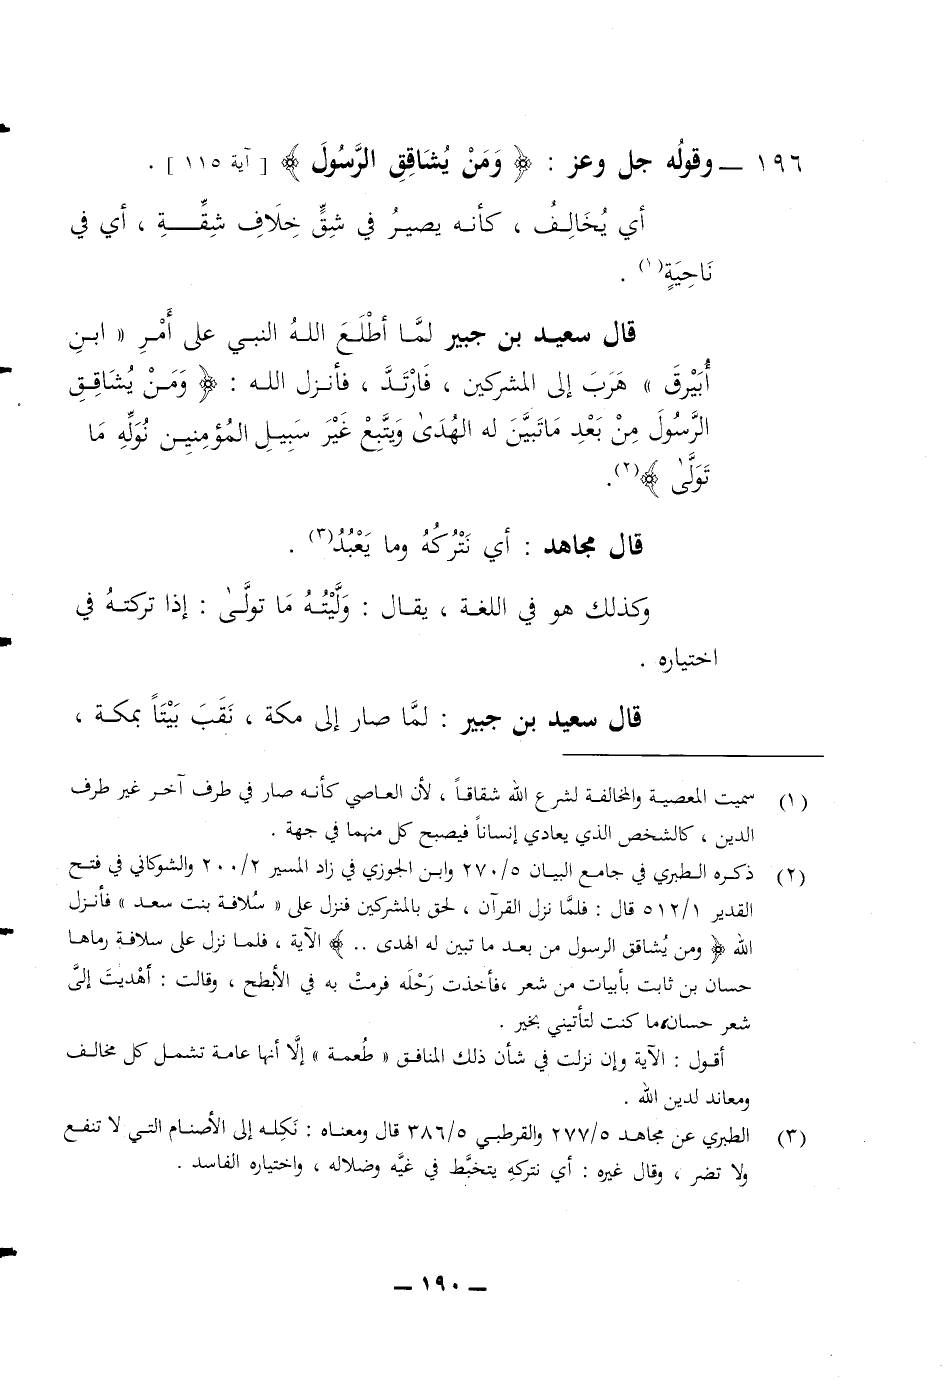 ١٩٦ ـ وقولُه جل وعز : ﴿ وَمَنْ يُشَاقِقِ الرَّسُولَ ﴾ [ آية ١١٥ ] .
أي يُخَالِفُ ، كأنه يصيرُ في شِقٍّ خِلَافِ شِقِّـــهِ ، أي في
نَاحِيَةٍ(١) .
قال سعيد بن جبير لمَّا أطْلَعَ اللهُ النبي على أَمْرِ « ابنِ
أُبَيْرقَ » هَرَبَ إلى المشركين ، فَارْتَدَّ ، فأنزل الله : ﴿ وَمَنْ يُشَاقِقِ
الرَّسُولَ مِنْ بَعْدِ مَاتَبَيَّنَ له الهُدَىٰ وَيَتَّبِعْ غَيْرَ سَبِيلِ المُؤمنِينِ نُوَلِّهِ مَا
تَوَلَّىٰ ﴾(٢).
قال مجاهد : أي نَتْرُكهُ وما يَعْبُدُ(٣) .
وكذلك هو في اللغة ، يقال : وَلَّيْتُهُ مَا تولَّىٰ : إذا تركتهُ في
اختياره .
قال سعيد بن جبير : لمَّا صار إلى مكة ، نَقَبَ بَيْتَاً بمكة ،
(١) سميت المعصية والمخالفة لشرع الله شقاقاً ، لأن العاصي كأنه صار في طرف آخر غير طرف
الدين ، كالشخص الذي يعادي إنساناً فيصبح كل منهما في جهة .
(٢) ذكره الطبري في جامع البيان ٢٧٠/٥ وابن الجوزي في زاد المسير ٢٠٠/٢ والشوكاني في فتح
القدير ٥١٢/١ قال : فلمَّا نزل القرآن ، لحق بالمشركين فنزل على « سُلافة بنت سعد » فأنزل
الله ﴿ ومن يُشاقق الرسول من بعد ما تبين له الهدى .. ﴾ الآية ، فلما نزل على سلافةٍ رماها
حسان بن ثابت بأبيات من شعر ،فأخذت رَحْلَه فرمتْ به في الأبطح ، وقالت : أهْديتَ إليَّ
شعر حسان،ما كنت لتأتيني بخير .
أقول : الآية وإن نزلت في شأن ذلك المنافق « طُعمة » إلَّا أنها عامة تشمل كل مخالف
ومعاند لدين الله .
(٣) الطبري عن مجاهد ٢٧٧/٥ والقرطبي ٣٨٦/٥ قال ومعناه : نَكِله إلى الأصنام التي لا تنفع
ولا تضر ، وقال غيره : أي نتركهِ يتخبَّط في غيِّه وضلاله ، واختياره الفاسد .
ـ ١٩٠ ـ